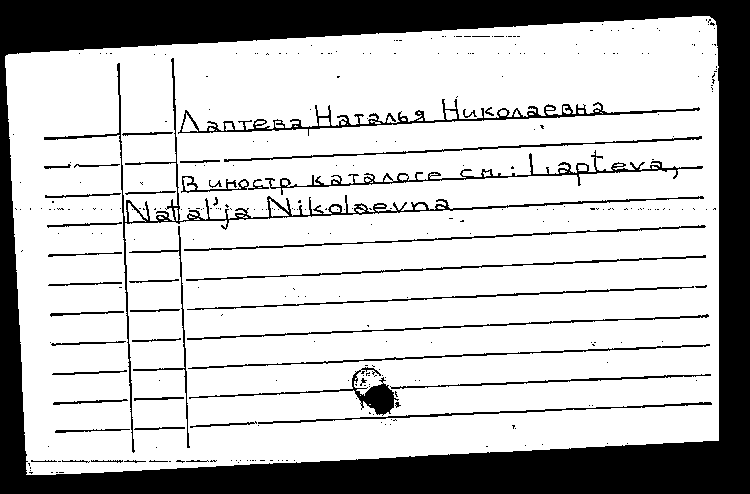 Лаптева, Наталья Николаевна
В иностр. каталоге см.: Lapteva,
Natal'ja Nikolaevna